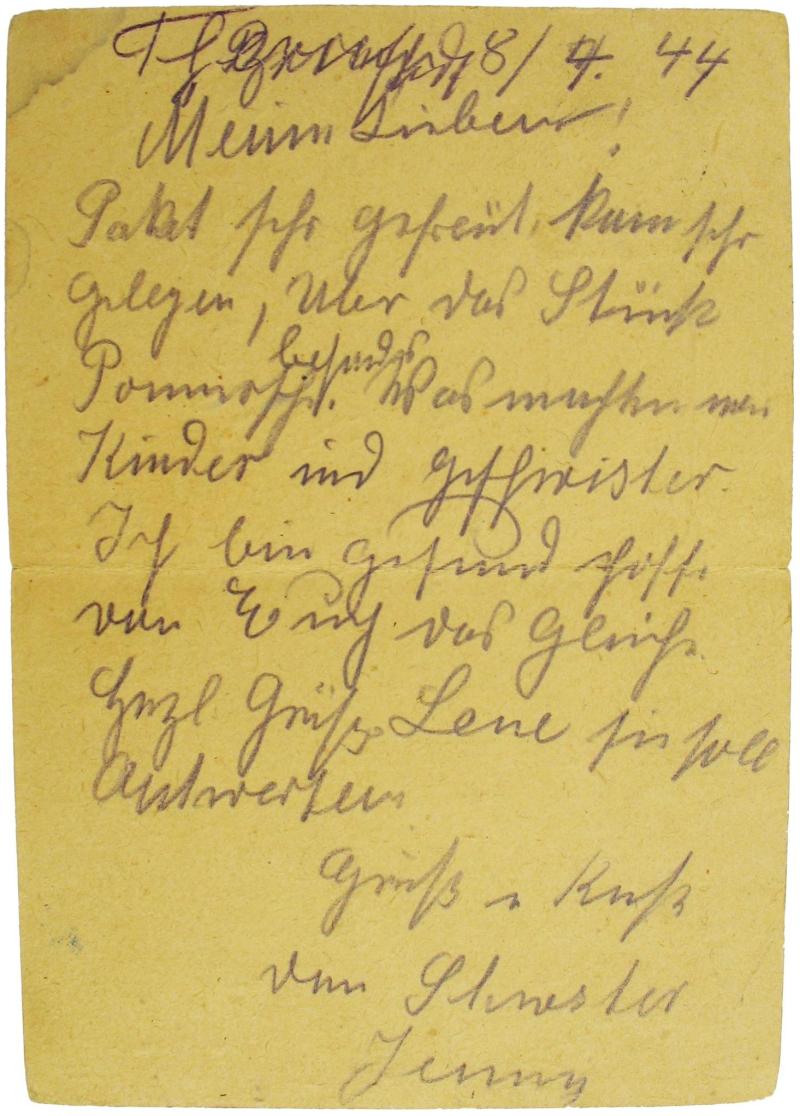 8/4. 44
Meine Lieben!
Paket sehr gefreut, kam sehr
gelegen, über das Stück
besonders
Was machen
Kinder und Geschwister.
Ich bin gesund hoffe
von Euch das Gleiche
Herzl Grüße Lene sie soll
Antworten
Gruß u Kuß
von Schwester
Jenny